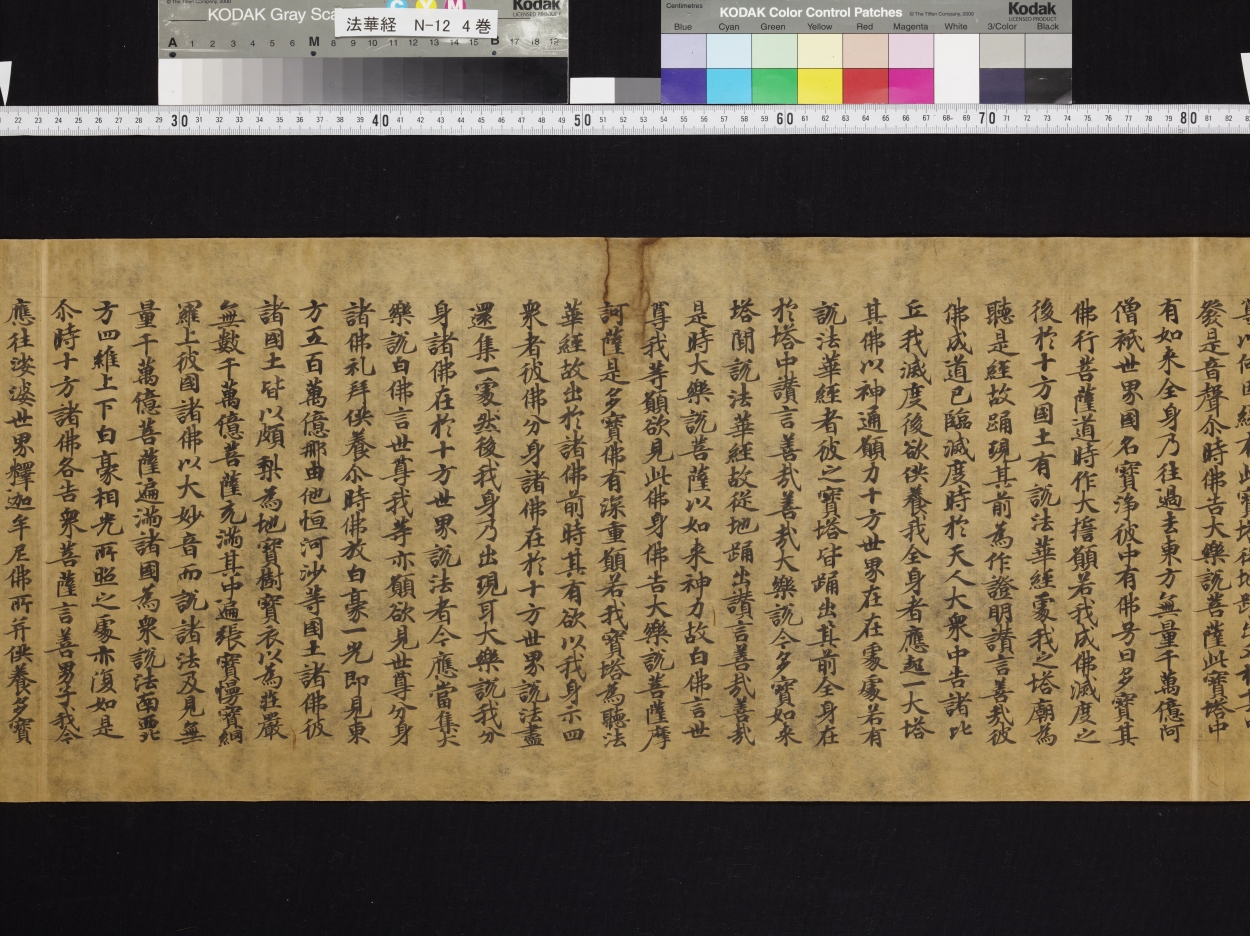 KODAK Gray Sca
Kodak
LICENSED PRODUCT
© The Tiffen Company, 2000
C Y M
法華経 N-12 4巻
A 1 2 3 4 5 6 M 8 9 10 11 12 13 14 15 B 17 18 19
Centimetres
KODAK Color Control Patches
© The Tiffen Company, 2000
Kodak
LICENSED PRODUCT
Blue Cyan Green Yellow Red Magenta White 3/Color Black
22 23 24 25 26 27 28 29 30 31 32 33 34 35 36 37 38 39 40 41 42 43 44 45 46 47 48 49 50 51 52 53 54 55 56 57 58 59 60 61 62 63 64 65 66 67 68 69 70 71 72 73 74 75 76 77 78 79 80 81 82
發是音聲尒時佛告大樂說菩薩此寶塔中
有如来全身乃往過去東方無量千萬億阿
僧祇世界國名寶淨彼中有佛号曰多寶其
佛行菩薩道時作大擔願若我成佛滅度之
後於十方國土有說法華經處我之塔廟為
聽是經故踊現其前為作證明讃言善哉彼
佛成道已臨滅度時於天人大衆中告諸比
丘我滅度後欲供養我全身者應起一大塔
其佛以神通願力十方世界在在處處若有
說法華經者彼之寶塔皆踊出其前全身在
於塔中讃言善哉善哉大樂說今多寶如来
塔聞說法華經故從地踊出讃言善哉善哉
是時大樂說菩薩以如来神力故白佛言世
尊我等願欲見此佛身佛告大樂說菩薩摩
訶薩是多寶佛有深重願若我寶塔為聽法
華經故出於諸佛前時其有欲以我身示四
衆者彼佛分身諸佛在於十方世界說法盡
還集一處然後我身乃出現耳大樂說我分
身諸佛在於十方世界說法者今應當集大
樂說白佛言世尊我等亦願欲見世尊分身
諸佛礼拜供養尒時佛放白豪一光即見東
方五百萬億那由他恒河沙等國土諸佛彼
諸國土皆以頗梨為地寶樹寶衣以為莊嚴
無數千萬億菩薩充滿其中遍張寶幔寶網
羅上彼國諸佛以大妙音而說諸法及見無
量千萬億菩薩遍滿諸國為衆說法南西北
方四維上下白豪相光所照之處亦復如是
尒時十方諸佛各告衆菩薩言善男子我今
應往娑婆世界釋迦牟尼佛所并供養多寶